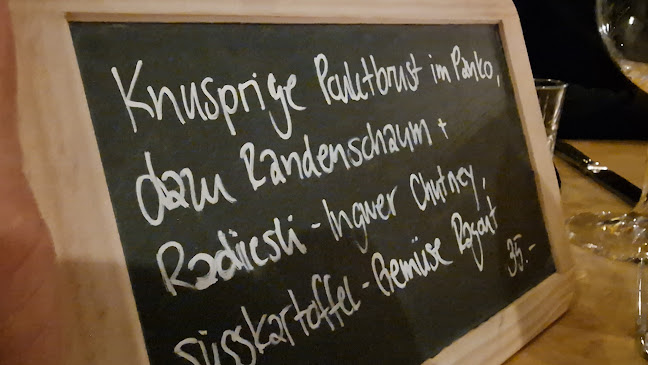 Knusprige Pouletbrust im Panko,
dazu Randenschaum +
Radiesli - Ingwer Chutney,
süsskartoffel - Gemüse Ragout
35.-